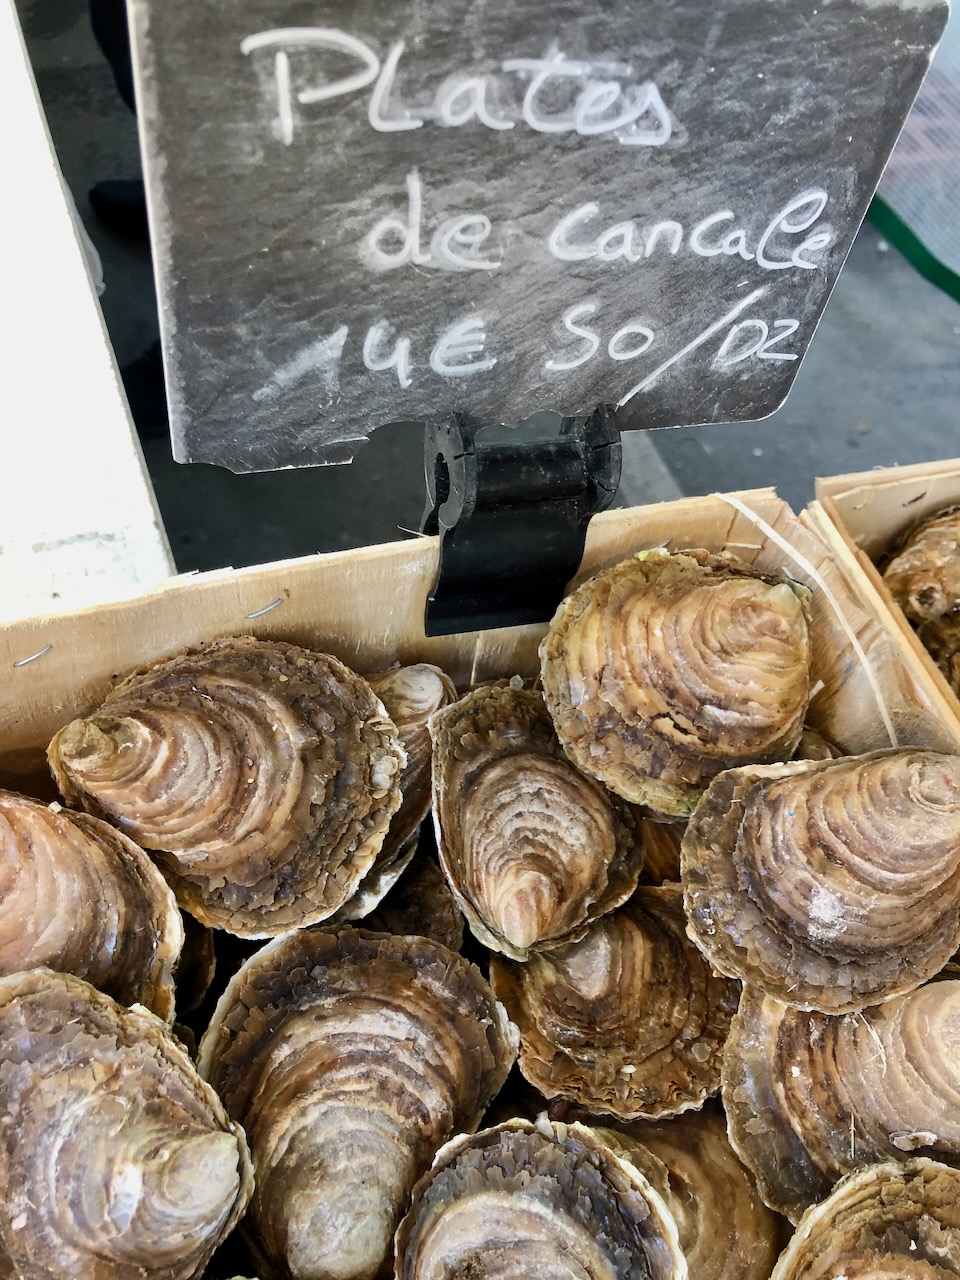 Plates
de cancale
14€ 50/DZ